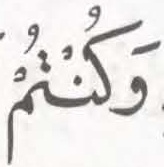 وَكُنْتُمْ